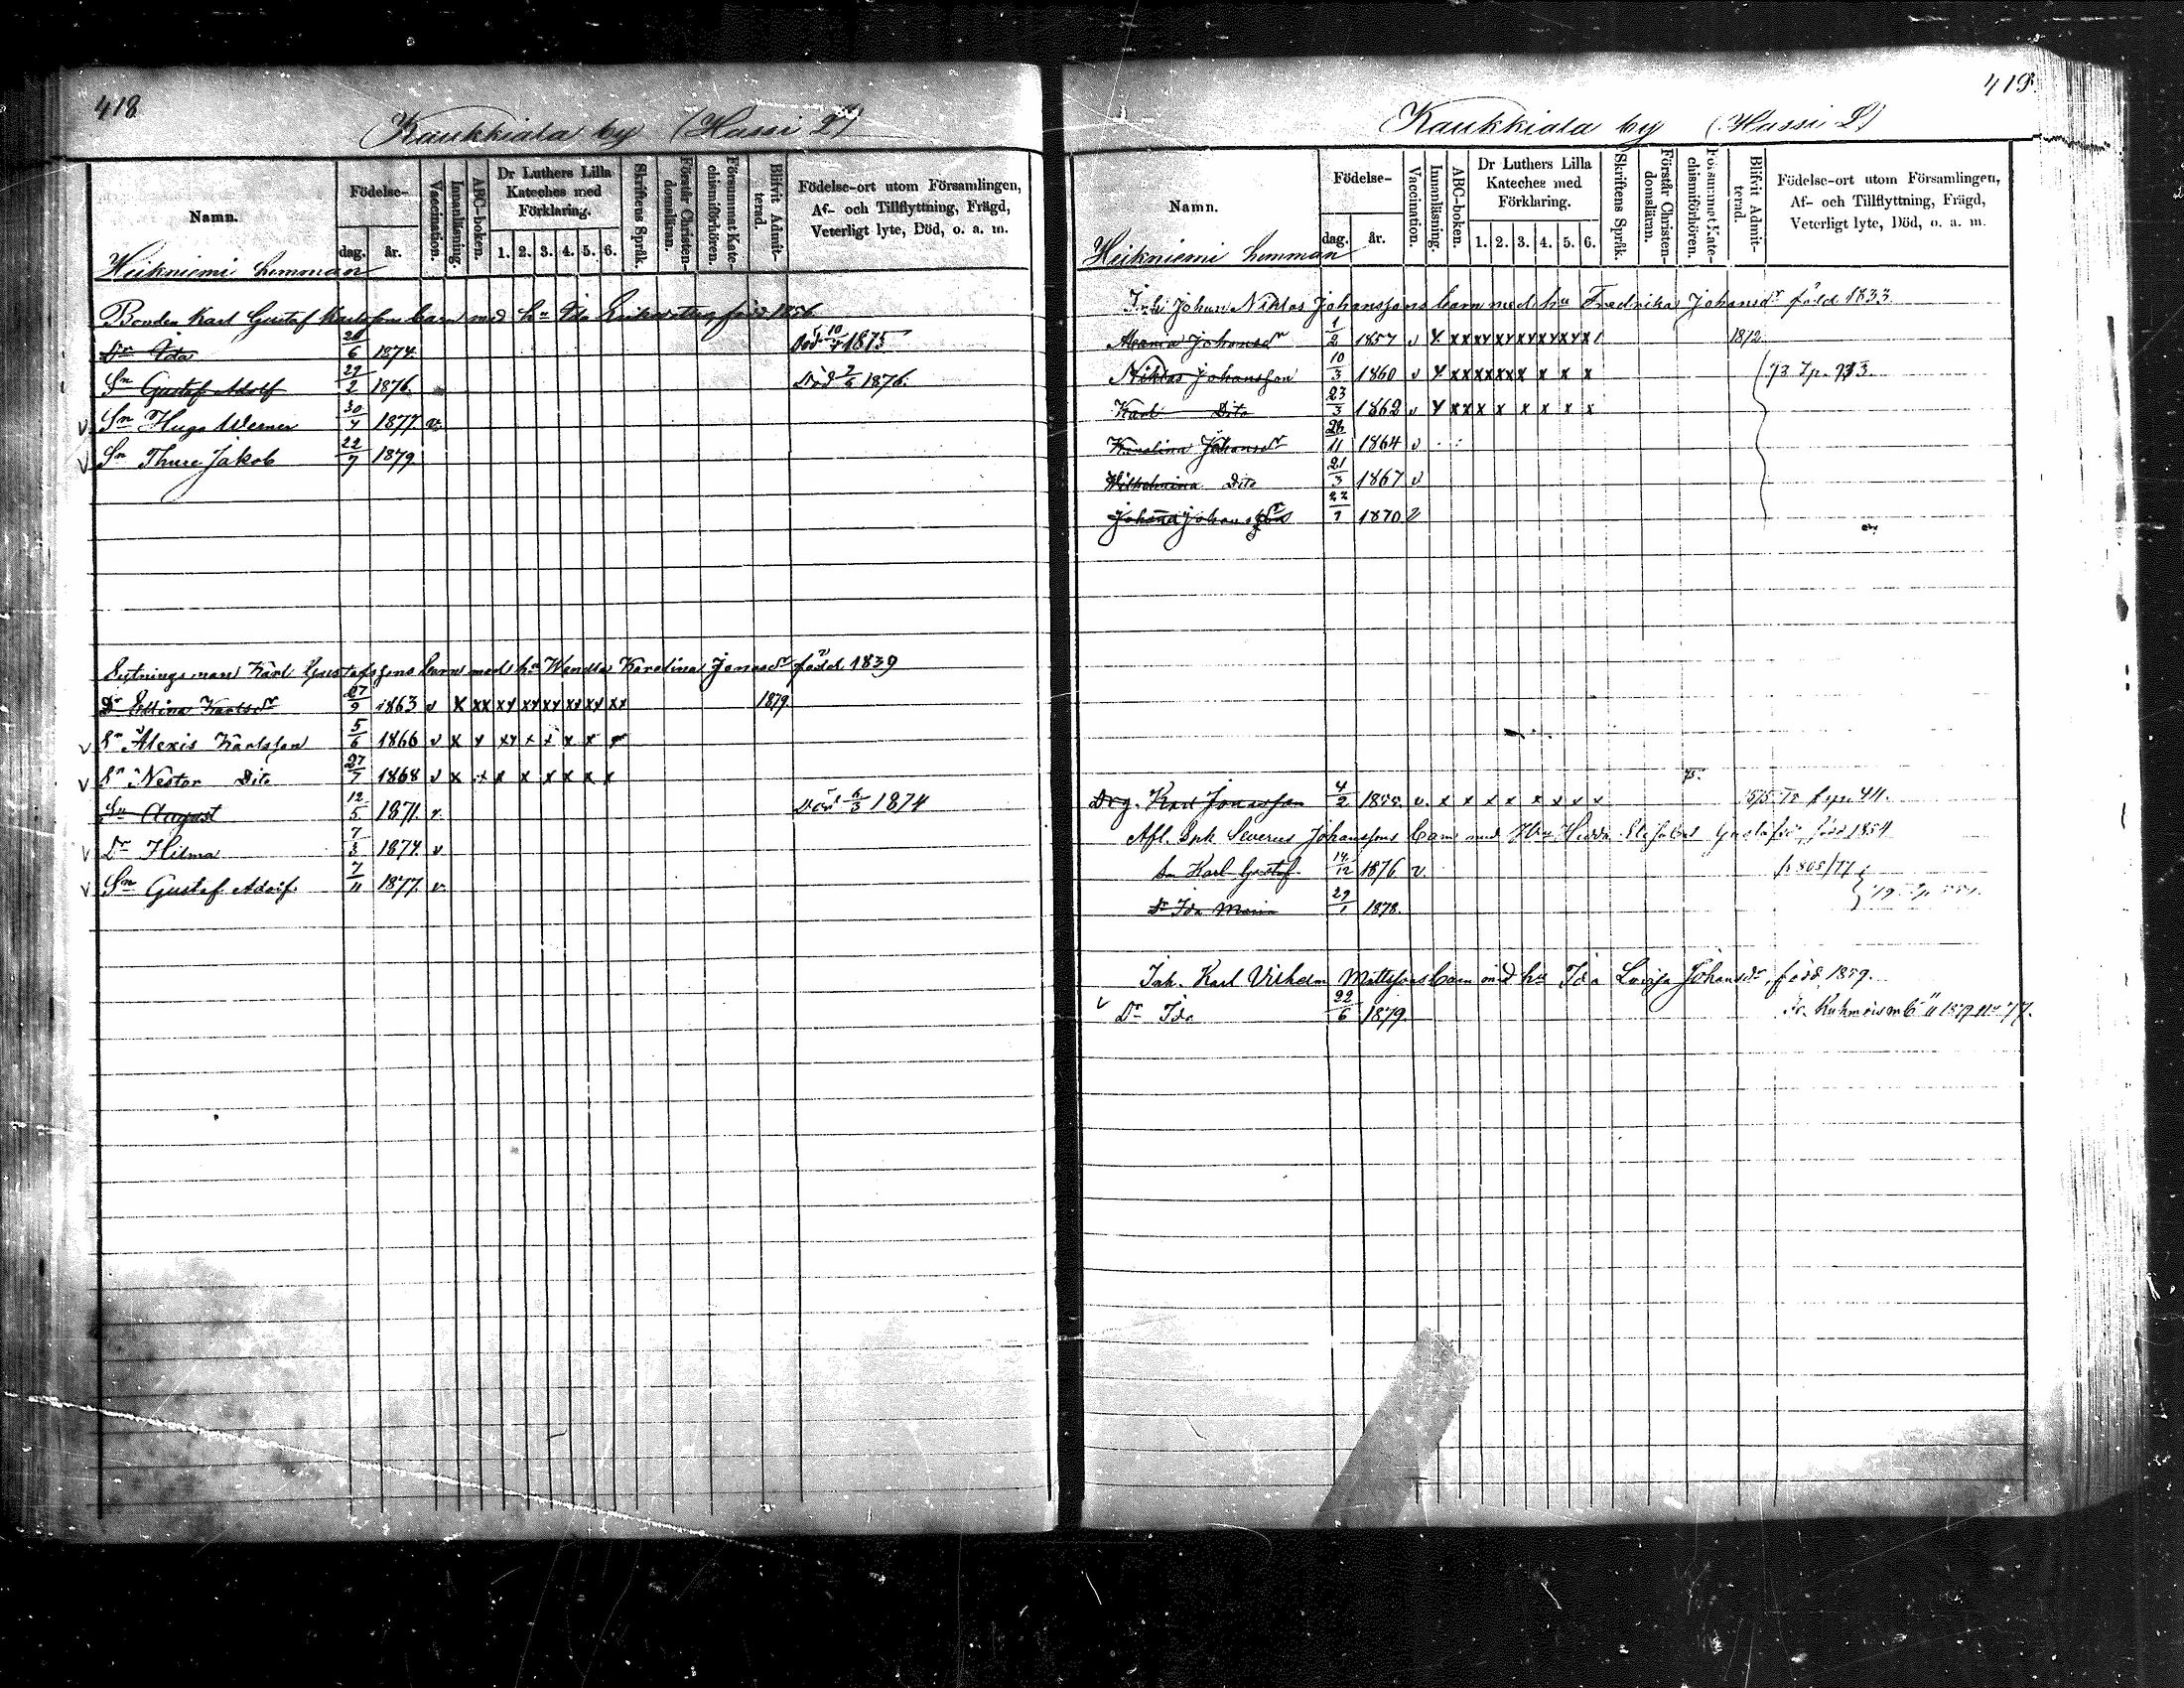 418
Kaukkiala by (Hassi 2)
Namn.
Födelse-
dag.
år.
Vaccination.
Innanläsning.
ABC-boken.
Dr Luthers Lilla Kateches med Förklaring.
1. 2. 3. 4. 5. 6.
Skriftens Språk.
Förstår Christen-domsläran.
Försummat Kate-chismiförhören.
Blifvit Admit-terad.
Födelse-ort utom Församlingen,
Af- och Tillflyttning, Frägd,
Veterligt lyte, Död, o. a. m.
Heikniemi hemman
Bonden Karl Gustaf Karlsson barn med hu Ida född 1856
Dr Ida 6 1874 Död 1875
Sn Gustaf Adolf 29/2 1876 Död 1876.
v Sn Hugo Werner 30/4 1877 v
v Sn Thure Jakob 22/7 1879
Karl Gustafssons barn med hu Wendla Karolina Jonasdr född 1839
Dr Karlsdr 27/9 1863 v x xx xx xx xx xx xx xx 1879
v Sn Alexis Karlsson 5/6 1866 v x x xx x x x x
v Sn Nestor Dito 27/7 1868 v x x x x x x x x
Sn August 12/5 1871 v Död 6/3 1874
v Dr Hilma 7/3 1874 v
v Sn Gustaf Adolf 7/11 1877 v
419.
Kaukkiala by (Hassi 2)
Namn.
Födelse-
dag.
år.
Vaccination.
Innanläsning.
ABC-boken.
Dr Luthers Lilla Kateches med Förklaring.
1. 2. 3. 4. 5. 6.
Skriftens Språk.
Förstår Christen-domsläran.
Försummat Kate-chismiförhören.
Blifvit Admit-terad.
Födelse-ort utom Församlingen,
Af- och Tillflyttning, Frägd,
Veterligt lyte, Död, o. a. m.
Heikniemi hemman
Johan Niklas Johanssons barn med hu Fredrika Johansdr född 1833
Johansdr 1/2 1857 v 1872
Niklas Johansson 10/3 1860 v
Karl Dito 23/3 1862 v
Karolina Johansdr 11 1864 v
Wilhelmina Dito 21/3 1867 v
Johanna Johansdr 1870 v
Drg. Karl Jonasson 4/2 v x x x x x x x x
Afl. Severus Johanssons barn med Hedda född 1854
Sn Karl Gustaf 14/12 1876 v
Dr Ida Maria 29/1 1878.
Inh. Karl Vilhelm Mattsons barn med hu Ida Lovisa Johansdr, född 1859.
v Dr Ida 22/6 1879.